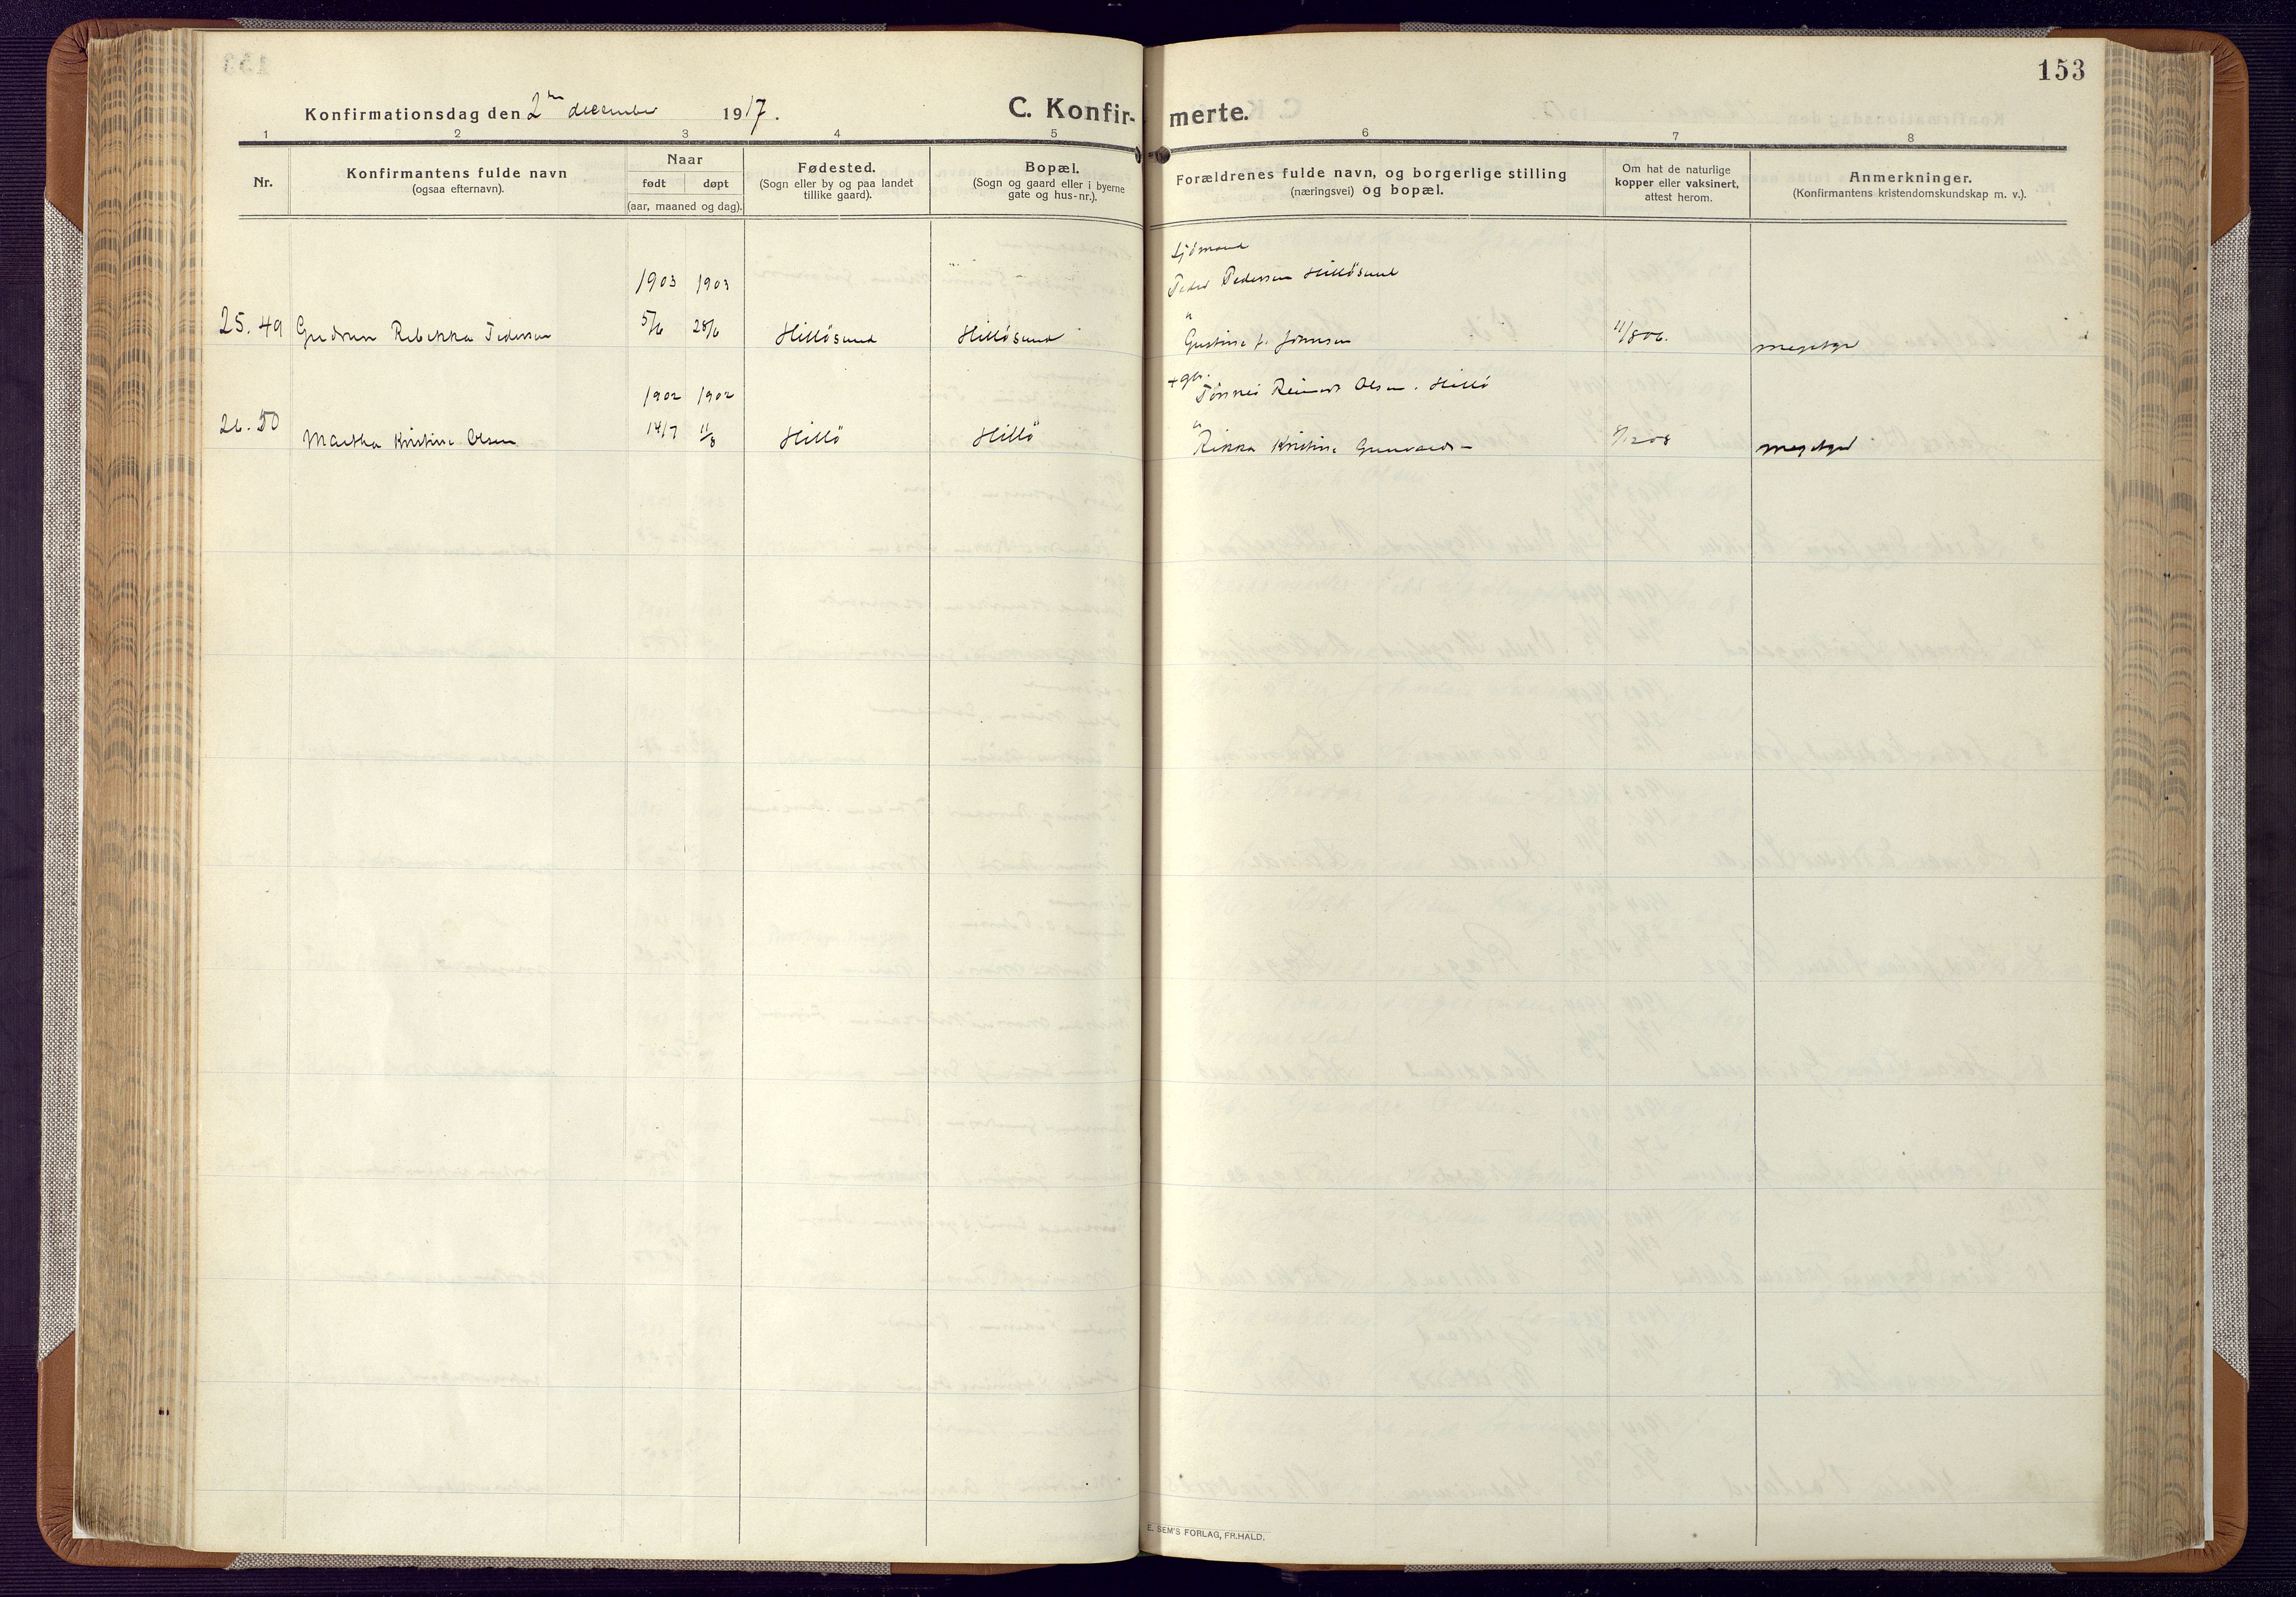 153
Konfirmationsdag den 2 december 1917.
C. Konfir- merte.
1 2 3 4 5 6 7 8
Nr.
Konfirmantens fulde navn
(ogsaa efternavn).
Naar
født døpt
(aar, maaned og dag).
Fødested.
(Sogn eller by og paa landet
tillike gaard).
Bopæl.
(Sogn og gaard eller i byerne
gate og hus-nr.).
Forældrenes fulde navn, og borgerlige stilling
(næringsvei) og bopæl.
Om hat de naturlige
kopper eller vaksinert,
attest herom.
Anmerkninger.
(Konfirmantens kristendomskundskap m. v.).
Sjömand
1903 1903 Peder Pedersen Hillösund
25. 49 Gudrun Rebekka Pedersen 5/6 28/6 Hillösund Hillösund Gustine f. Jönnsen 11/8 06. megetgd
1902 1902 + gbr. Tönnes Reinert Olsen. Hillö
26. 50 Martha Kristine Olsen 14/7 11/8 Hillö Hillö Rikka Kristine Gunvalds- megetgd
E. SEM'S FORLAG, FR.HALD.